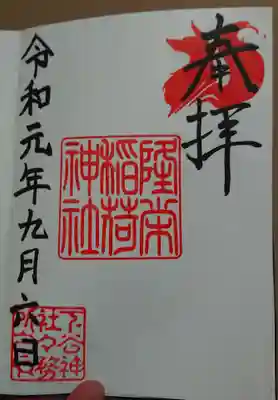 奉拝
隆栄
稲荷
神社
令和元年九月六日
下谷神
社々務